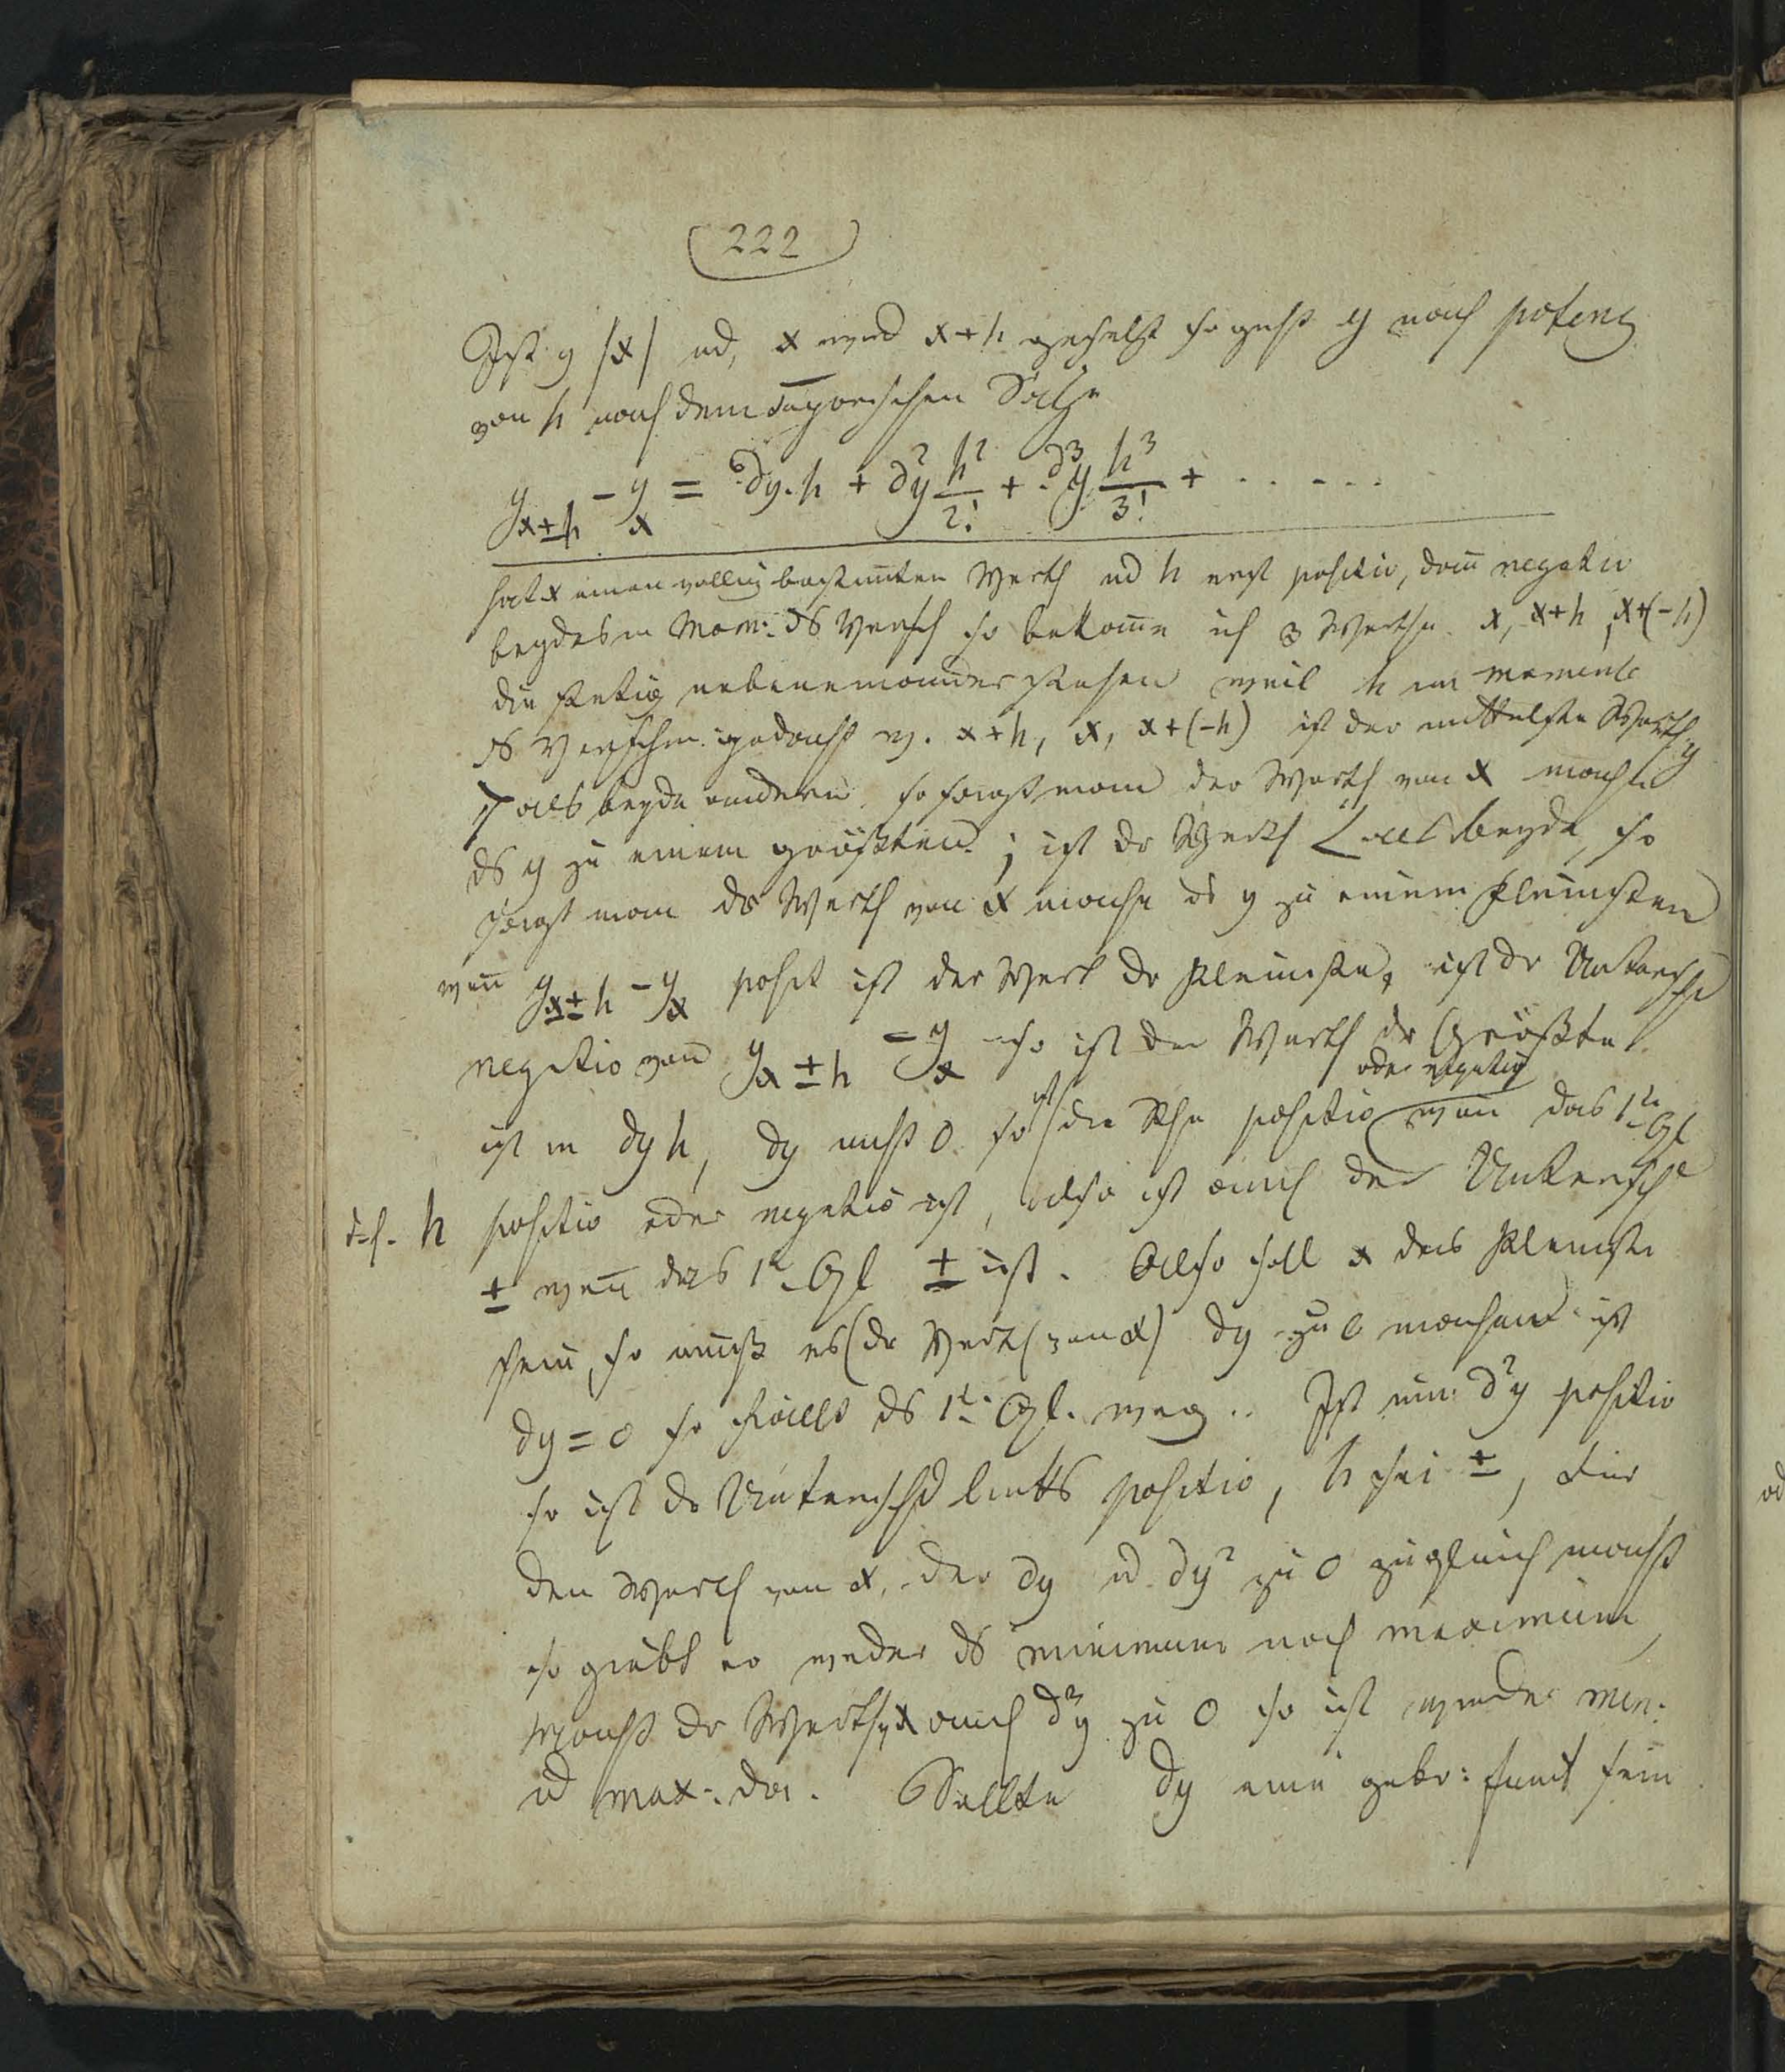 222
Ist y |x| ud, x wird x+h gesetzt so geht y nach potenz
von h nach dem Taylorischen Satze
y_{x±h} - y_x = dy.h + d²y h²/2! + d³y h³/3! + . . . . . .
hat x einen völlig bestim̄ten Werth ud h erst positiv, dan̄ negativ
beydes im Mom: ds Versch so bekom̄e ich 3 Werthe x, x+h, x+(-h)
die stetig nebeneinander stehen weil h im momente
ds Verschw. gedacht w. x+h, x, x+(-h) ist der mittelste Werth y
> als beyde andern, so sagt man der Werth von x mache
ds y zu einem größten; ist dr Werth < als beyde, so
sagt man dr Werth von x mache ds y zu einem kleinsten
wen̄ y_{x±h} - y_x posit ist der Werth dr kleinste, ist dr Untersch
negativ von y_{x±h} - y_x so ist der Werth dr Größte
ist in dyh, dy nicht 0 so ist die Rhe positiv oder negativ wen̄ das 1te Gl
d.h. h positiv oder negativ ist, also ist auch der Untersch
± wen̄ das 1te Gl ± ist. Also soll x das Kleinste
sein, so muß es (dr Werth von x) dy zu 0 machen ist
dy = 0 so fällt ds 1te Gl. weg.. Ist nun d²y positiv
so ist dr Unterschd links positiv, h sei ±, Für
den Werth von x, der dy ud dy² zu 0 zugleich macht
so giebt es weder ds minimum noch maximum,
Macht dr Werth v x auch d³y zu 0 so ist wieder min:
ud max: da. Sollte dy eine gebr: funct sein